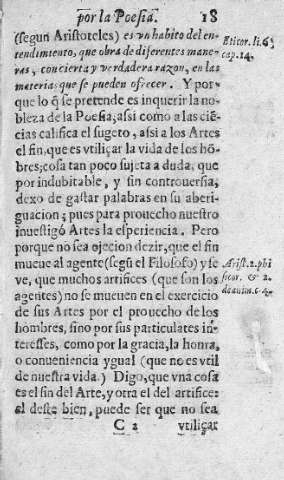 por la Poesia. 18
(segun Aristoteles) es vn habito del en-
tendimiento, que obra de diferentes mane-
ras, con cierta y verdadera razon, en las
materias que se pueden ofrecer. Y por-
que lo q̃ se pretende es inquerir la no-
bleza de la Poesia, assi como a las ciē-
cias califica el sugeto, assi a los Artes
el fin, que es vtiliçar la vida de los hō-
bres; cosa tan poco sujeta a duda, que
por indubitable, y sin controuersia,
dexo de gastar palabras en su aberi-
guacion; pues para prouecho nuestro
inuestigó Artes la esperiencia. Pero
porque no sea ojecion dezir, que el fin
mueue al agente (segū el Filosofo) y se
ve, que muchos artifices (que son los
agentes) no se mueuen en el exercicio
de sus Artes por el prouecho de los
hombres, sino por sus particulates in-
teresses, como por la gracia, la honra,
o conueniencia ygual (que no es vtil
de nuestra vida.) Digo, que vna cosa
es el fin del Arte, y otra el del artifice:
al deste bien, puede ser que no sea
C 2 vtiliçar
Eticor. li. 6.
cap. 14.
Arist. 2. phi
sicor. & 2.
de anim. c. 4.